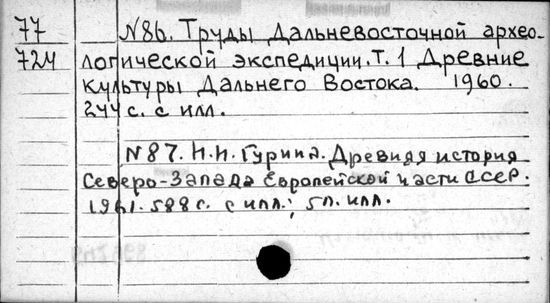 77 N86. Труды Дальневосточной архео-
72М логической экспедиции. Т. 1 Древние
культуры Дальнего Востока. 1960.
244 с. с илл.
N87. Н.Н. Гурина. Древняя история
Северо-Запада Европейской части СССР.
1961. 588 с. с илл.; 5 л. илл.